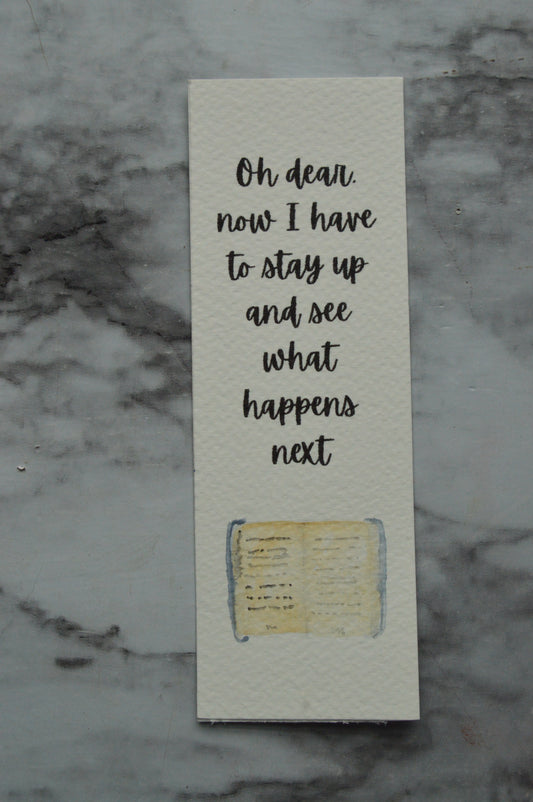 Oh dear.
now I have
to stay up
and see
what
happens
next